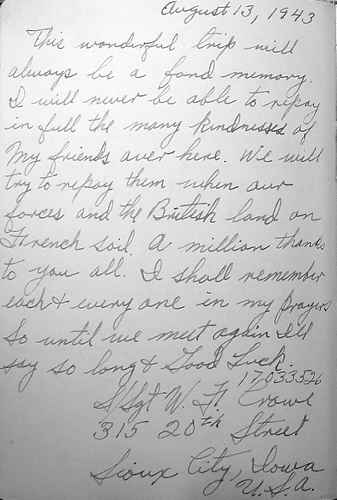 August 13, 1943
This wonderful trip will
always be a fond memory.
I will never be able to repay
in full the many kindnesses of
my friends over here. We will
try to repay them when our
forces and the British land on
French soil. A million thanks
to you all. I shall remember
each & every one in my prayers
So until we meet again I'll
say so long & Good Luck.
17033526
S/Sgt W. H. Crowe
315 20th Street
Sioux City, Iowa
U.S.A.